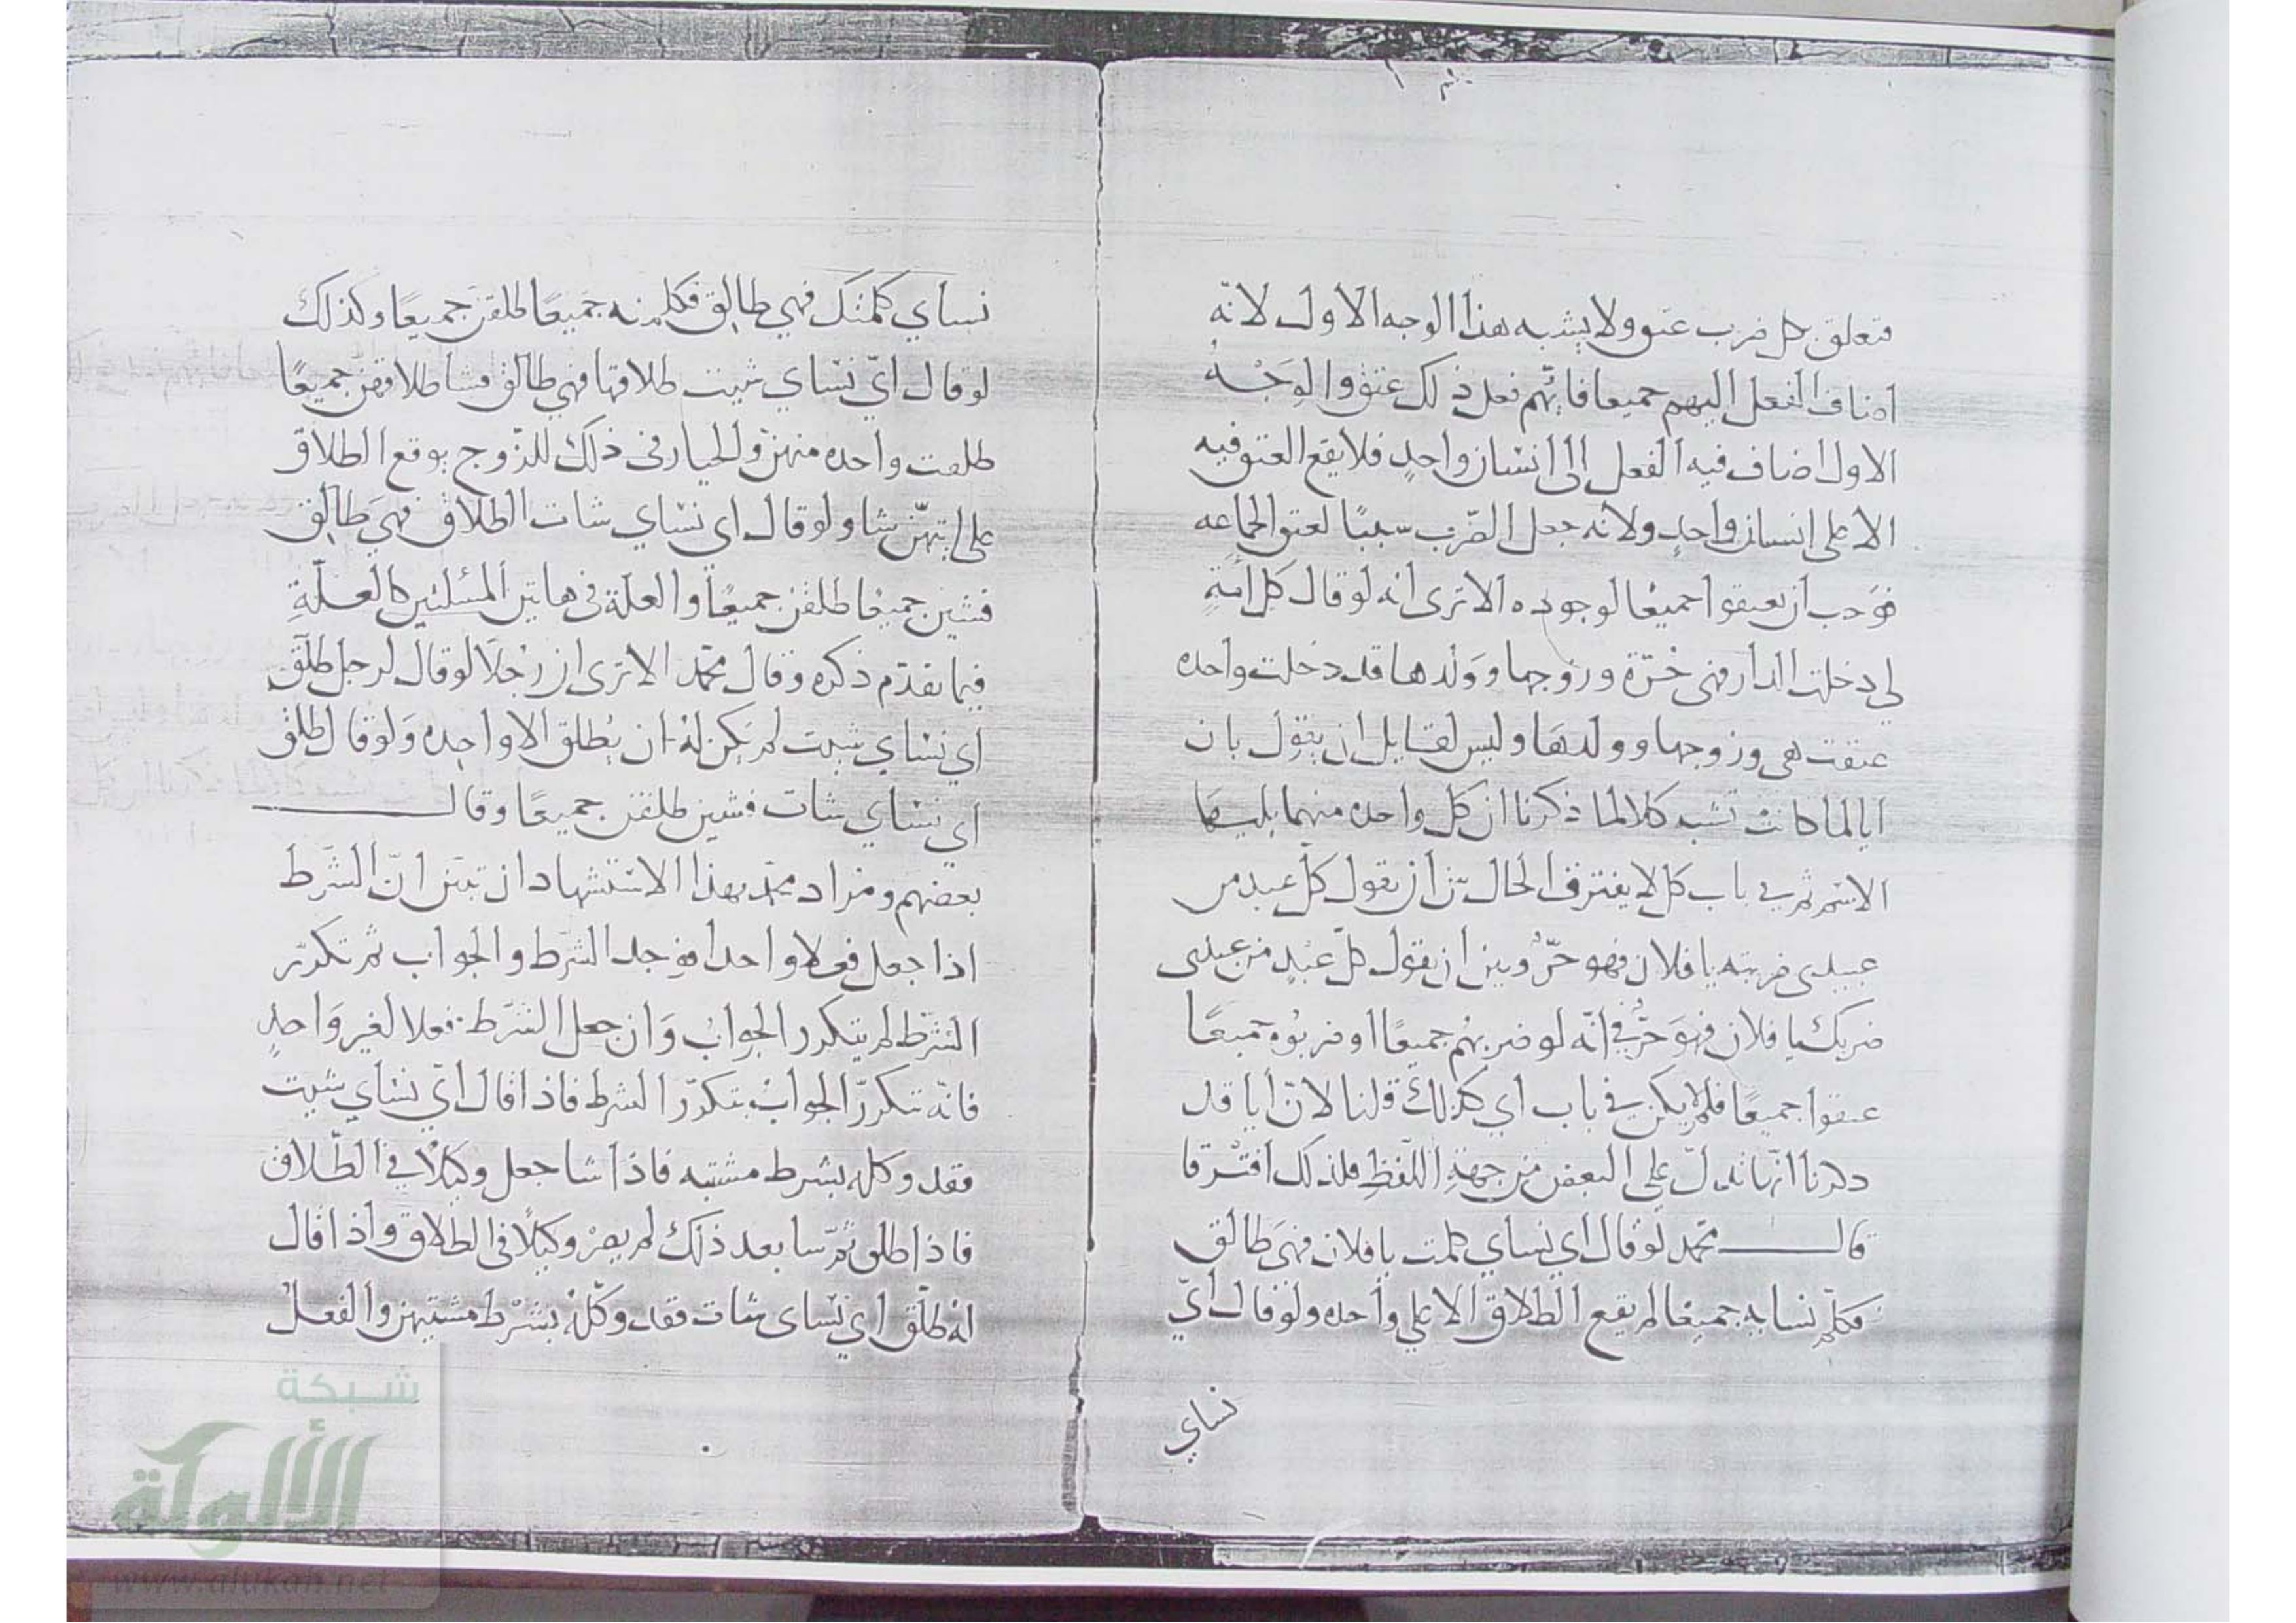 فتعلق بكل ضرب عتق ولا يشبه هذا الوجه الاول لانّه
اضاف الفعل اليهم جميعا فايّهم فعل ذلك عتق والوَجْهُ
الاول اضاف فيه الفعل الى انسان واحدٍ فلا يقع العتق فيه
الا على انسان واحدٍ ولانه جعل الضّرب سببًا لعتق الجماعه
فوَجب ان يعتقوا جميعًا لوجوده الا ترى انه لو قال كل امَةٍ
لي دخلت الدار فهى حُرّة وزوجها ووَلدها قد دخلت واحده
عتقت هى وزوجها وولدهَا وليس لقايل ان يقول بان
ايا لما كانت تشبه كلا لما ذكرنا ان كل واحده منهما يليهَا
الاسْم ثم في باب كل لا يفترق الحال بين ان يقول كل عبد من
عبيدى ضربته يا فلان فهو حرّ وبين ان يقول كل عَبْدٍ من عبيدى
ضربك يا فلان فهوَ حرّ في انّه لو ضربهُم جميعًا او ضربُوه جميعًا
عتقوا جميعًا فلم لا يكن في باب اي كذلك قلنا لانّ أيا قد
ذكرنا انّها تدلّ على البعض من جهةِ اللّفظِ فلذلك افتْرَقا
قال محمّد لو قال اي نساي كلمت يا فلان فهىَ طالق
فكلّم نسايه جميعًا لم يقع الطلاق الا على واحده ولو قال ايّ
نساي
نساي كلمتك فهي طالِق فكلمنه جَميعًا طلقن جميعًا وكذلك
لو قال ايّ نسَاي شيت طلاقها فهي طالق فشا طلاقهنّ جميعًا
طلقت واحده منهنّ والخيار فى ذلك للزّوج يوقع الطلاق
على ايتهنّ شا ولو قال اي نسَاي شات الطلاق فهيَ طالق
فشين جميعًا طلقن جميعًا والعلّة فى هاتين المسْلتين كالعلّةِ
فيما تقدّم ذكره وقال محمّد الا ترى ان رجُلَا لو قال لرجل طلّق
اي نسَاي شيت لم يكن لهُ ان يُطلق الا واحِده وَلو قال طلق
اي نسَاي شات فشين طلقن جميعًا وقال
بعضهم ومراد محمّد بهذا الاستشهاد ان تبيّن انّ الشَرط
اذا جعل فعلا واحدا فوجد الشرط والجواب ثم تكرّر
الشرط لم يتكرر الجواب وَان جعل الشرط فعلا لغير وَاحدٍ
فانّه تتكررّ الجوابْ بتكرّر الشرط فاذا قال ايّ نسَاي شيت
فقد وكله بشرط مشيته فاذا شا جعل وكيلًا في الطّلاق
فاذا طلق ثمّ شا بعد ذلك لم يصرْ وكيلًا فى الطلاق واذا قال
لهُ طلّق اي نسَاى شات فقد وكّلهُ بشَرْط مشيتهن والفعلُ
شبكة
الألوكة
www.alukah.net